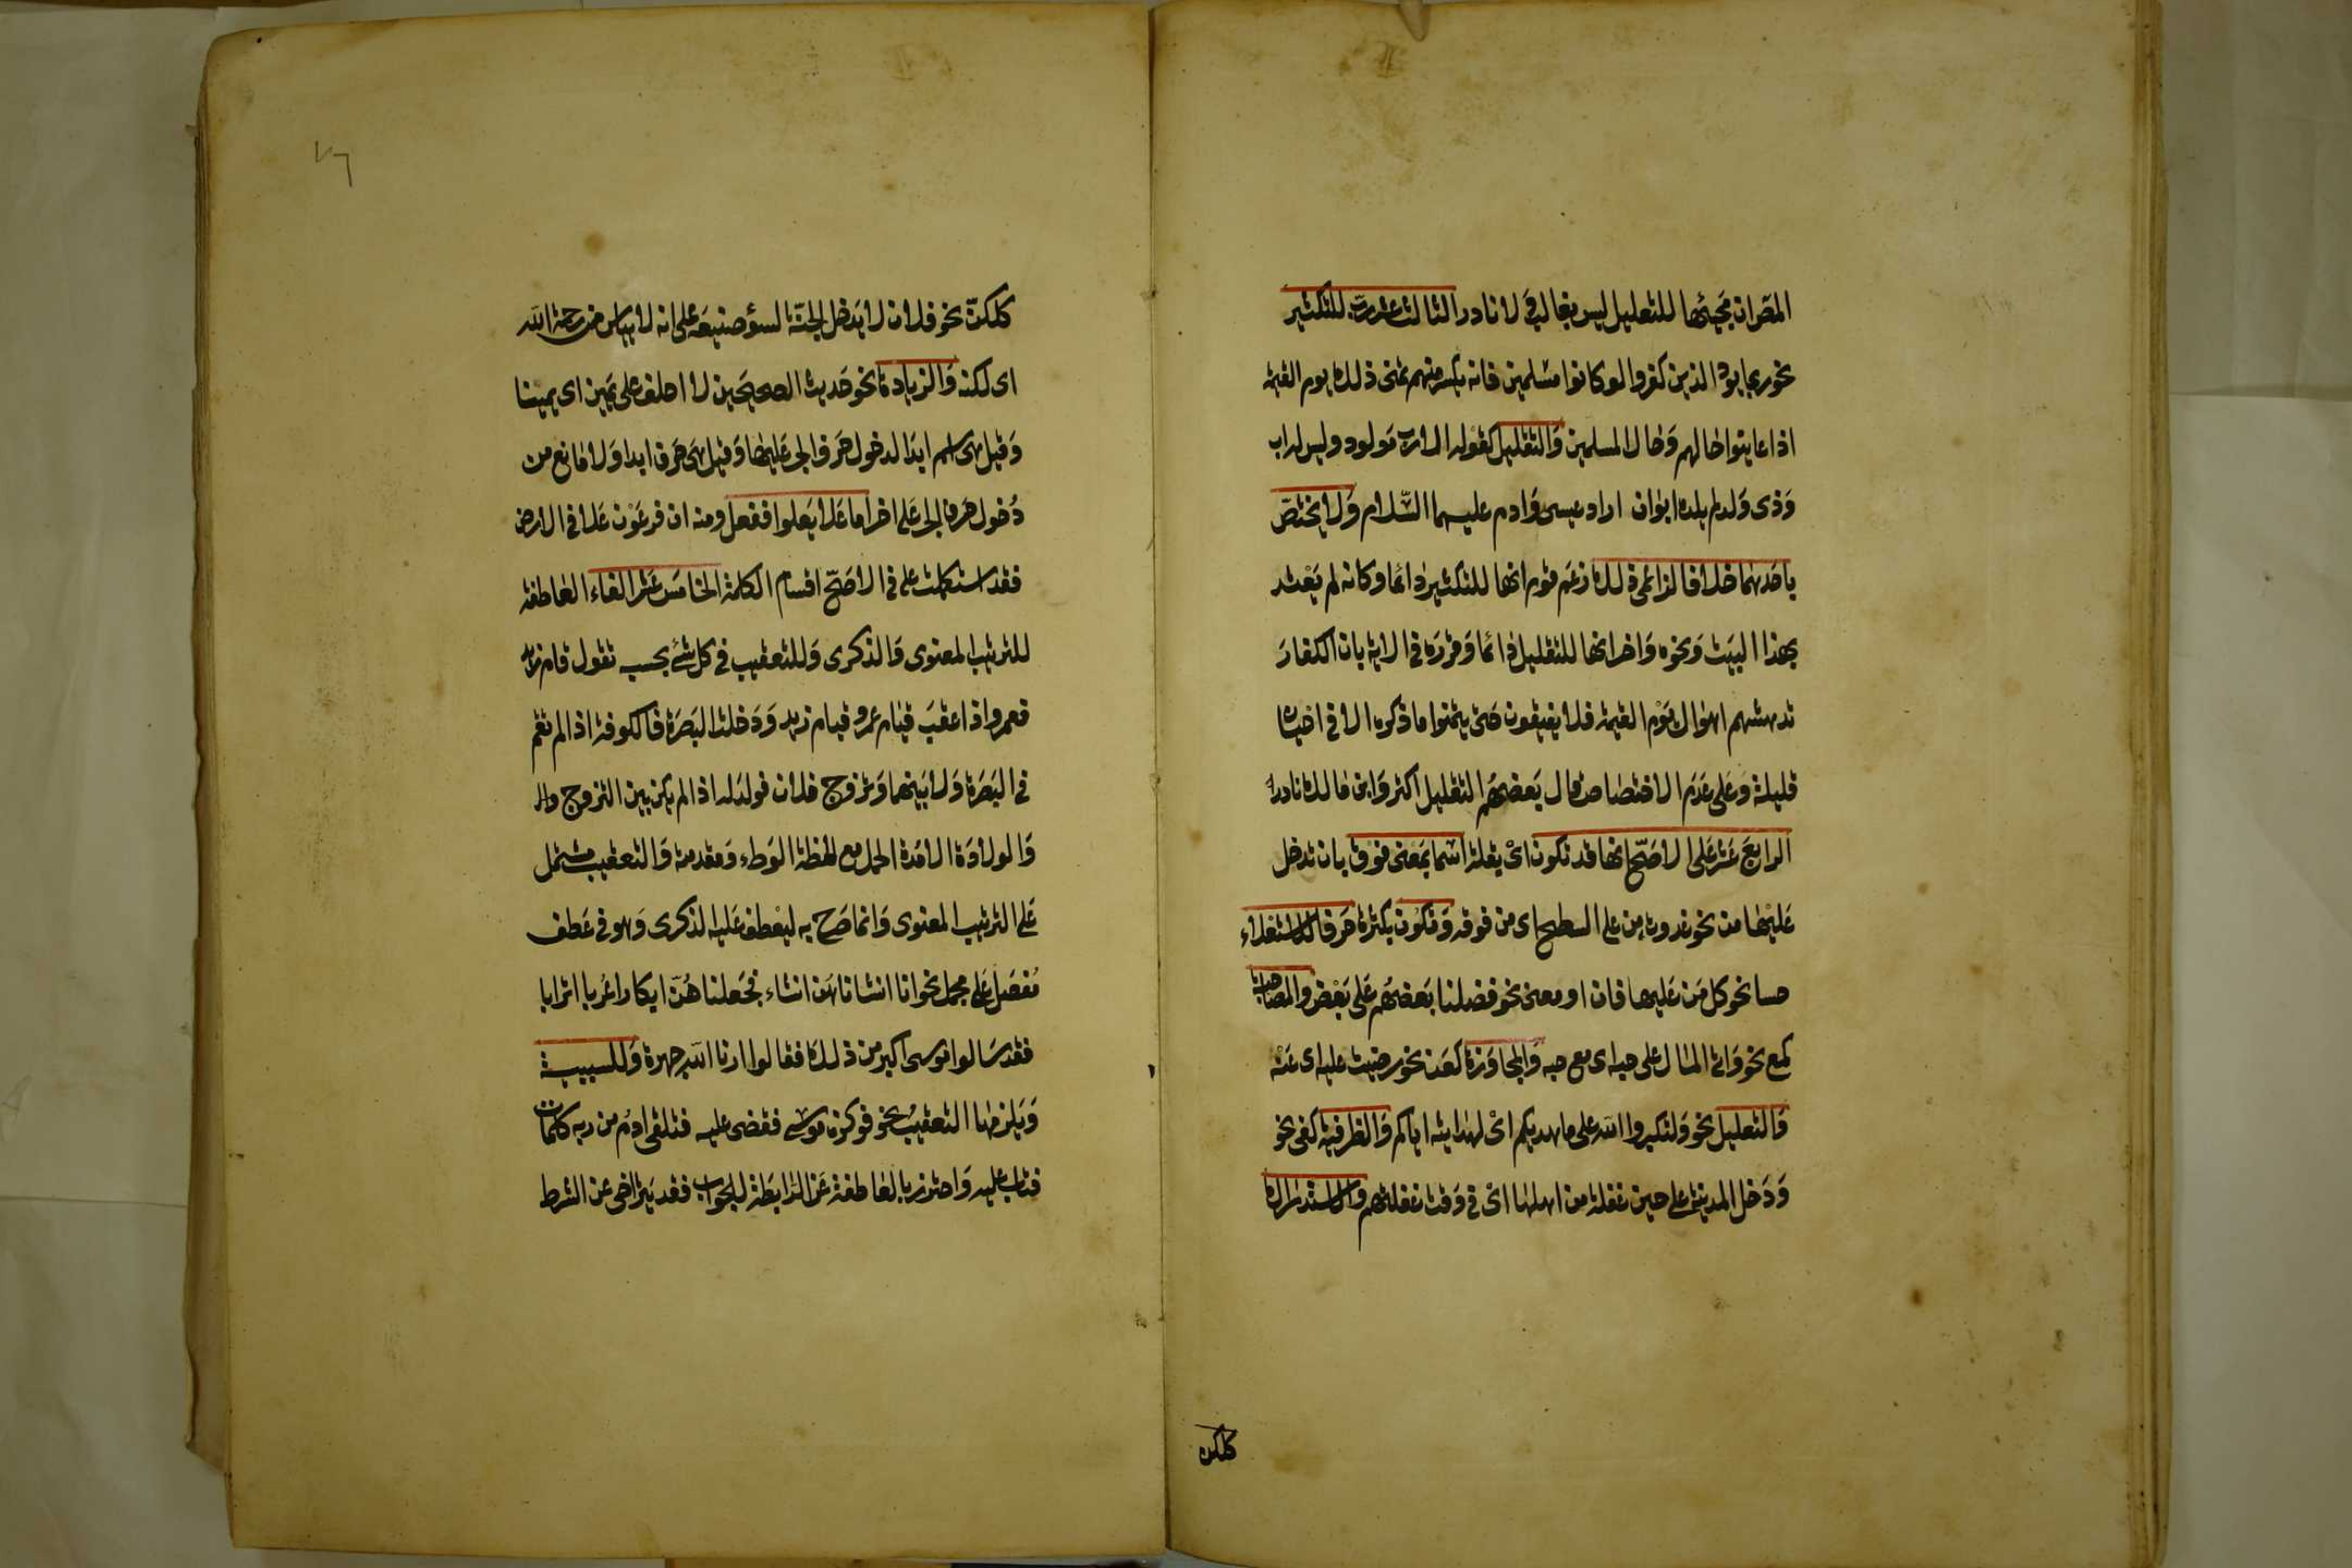 المص ان مجيئها للتعليل ليس بغالب في لا نادر الثالث عشر رب للتكثير
نحو ربما يود الذين كفروا لو كانوا مسلمين فانه يكثر منهم تمنى ذلك يوم القيمة
اذا عاينوا حالهم وحال المسلمين والتقليل كقوله الا رب مولود وليس له اب
وذى ولد لم يلده ابوان اراد عيسى وادم عليهما السلام ولا يختص
باحدهما خلافا لزاعمى ذلك زعم قوم انها للتكثير دائما وكانه لم يعتد
بهذا البيت ونحوه واخر انها للتقليل دائما وقرره في الاية بان الكفار
تدهشهم اهوال يوم القيمة فلا يفيقون حتى يتمنوا ما ذكره الا في احيان
قليلة وعلى عدم الاختصاص قال بعضهم التقليل اكثر وابن مالك نادر
الرابع عشر على الاصح انها قد تكون اى بقلة اسما بمعنى فوق بان تدخل
عليها من نحو غدوت من على السطح اى من فوقه وتكون بكثرة حرفا للاستعلاء
حسا نحو كل من عليها فان او معنى نحو فضلنا بعضهم على بعض والمصاحبة
كمع نحو واتى المال على حبه اى مع حبه والمجاوزة كعن نحو رضيت عليه اى عنه
والتعليل نحو ولتكبروا الله على ما هديكم اى لهدايته اياكم والظرفية كفى نحو
ودخل المدينة على حين غفلة من اهلها اى في وقت غفلتهم والاستدراك
كلكن
٧٦
كلكن نحو فلان لا يدخل الجنة لسوء صنيعه على انه لا يياس من رحمة الله
اى لكنه والزيادة نحو حديث الصحيحين لا احلف على يمين اى يمينا
وقيل هى اسم ابدا لدخول حرف الجر عليها وقيل هى حرف ابدا ولا مانع من
دخول حرف الجر على اخر اما علا يعلوا ففعل ومنه ان فرعون علا في الارض
فقد استكملت على في الاصح اقسام الكلمة الخامس عشر الفاء العاطفة
للترتيب المعنوى والذكرى وللتعقيب في كل شئ بحسبه تقول قام زيد
فعمرو اذا عقب قيام عمرو قيام زيد ودخلت البصرة فالكوفة اذا لم تقم
في البصرة ولا بينهما وتزوج فلان فولد له اذا لم يكن بين التزوج وال
والولادة الا مدة الحمل مع لحظة الوطء ومقدمته والتعقيب مشتمل
على الترتيب المعنوى وانما صرح به ليعطف عليه الذكرى وهو في عطف
مفصل على مجمل نحو انا انشاناهن انشاء فجعلناهن ابكارا عربا اترابا
فقد سالوا موسى اكبر من ذلك فقالوا ارنا الله جهرة وللسببية
ويلزمها التعقيب نحو فوكزه موسى فقضى عليه فتلقى ادم من ربه كلمات
فتاب عليه واحترز بالعاطفة عن الرابطة للجواب فقد يتراخى عن الشرط